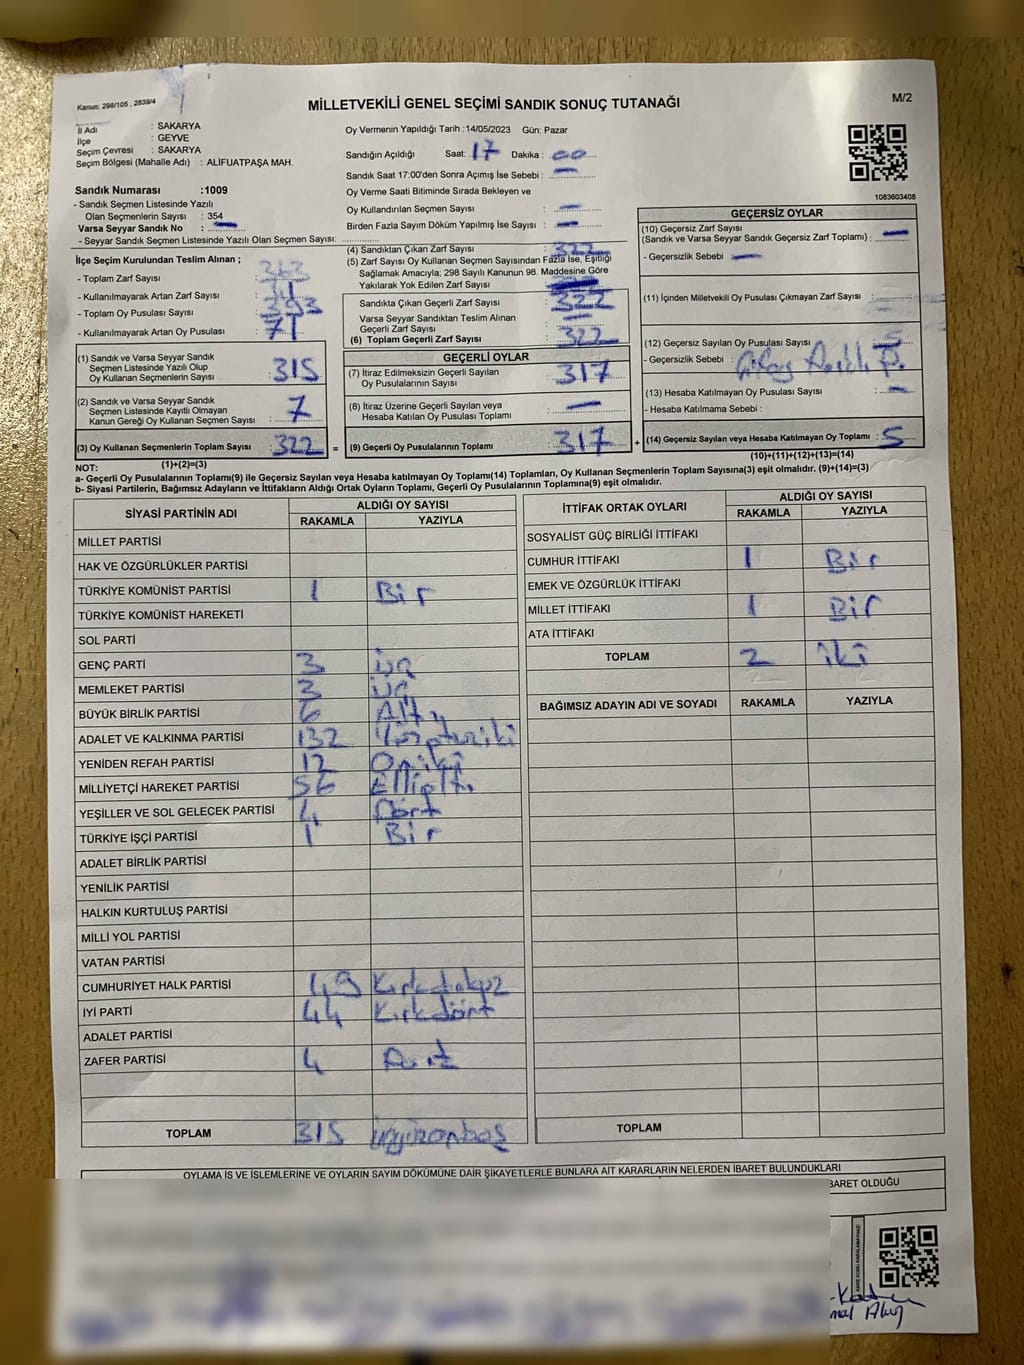 Kanun: 298/105 , 2839/4
MİLLETVEKİLİ GENEL SEÇİMİ SANDIK SONUÇ TUTANAĞI
M/2
İl Adı : SAKARYA
İlçe : GEYVE
Seçim Çevresi : SAKARYA
Seçim Bölgesi (Mahalle Adı) : ALİFUATPAŞA MAH.
Sandık Numarası :1009
- Sandık Seçmen Listesinde Yazılı
Olan Seçmenlerin Sayısı : 354
Varsa Seyyar Sandık No :
- Seyyar Sandık Seçmen Listesinde Yazılı Olan Seçmen Sayısı:
Oy Vermenin Yapıldığı Tarih :14/05/2023 Gün: Pazar
Sandığın Açıldığı Saat: 17 Dakika : 00
Sandık Saat 17:00'den Sonra Açımış İse Sebebi :
Oy Verme Saati Bitiminde Sırada Bekleyen ve
Oy Kullandırılan Seçmen Sayısı :
Birden Fazla Sayım Döküm Yapılmış İse Sayısı :
1083603408
İlçe Seçim Kurulundan Teslim Alınan ;
- Toplam Zarf Sayısı :
- Kullanılmayarak Artan Zarf Sayısı :
- Toplam Oy Pusulası Sayısı : 393
- Kullanılmayarak Artan Oy Pusulası : 71
(1) Sandık ve Varsa Seyyar Sandık
Seçmen Listesinde Yazılı Olup
Oy Kullanan Seçmenlerin Sayısı : 315
(2) Sandık ve Varsa Seyyar Sandık
Seçmen Listesinde Kayıtlı Olmayan
Kanun Gereği Oy Kullanan Seçmen Sayısı : 7
(3) Oy Kullanan Seçmenlerin Toplam Sayısı : 322
(1)+(2)=(3)
(4) Sandıktan Çıkan Zarf Sayısı : 322
(5) Zarf Sayısı Oy Kullanan Seçmen Sayısından Fazla İse, Eşitliği
Sağlamak Amacıyla; 298 Sayılı Kanunun 98. Maddesine Göre
Yakılarak Yok Edilen Zarf Sayısı :
Sandıkta Çıkan Geçerli Zarf Sayısı : 322
Varsa Seyyar Sandıktan Teslim Alınan
Geçerli Zarf Sayısı :
(6) Toplam Geçerli Zarf Sayısı : 322
GEÇERLİ OYLAR
(7) İtiraz Edilmeksizin Geçerli Sayılan
Oy Pusulalarının Sayısı : 317
(8) İtiraz Üzerine Geçerli Sayılan veya
Hesaba Katılan Oy Pusulası Toplamı :
= (9) Gerçerli Oy Pusulalarının Toplamı : 317 +
GEÇERSİZ OYLAR
(10) Geçersiz Zarf Sayısı
(Sandık ve Varsa Seyyar Sandık Geçersiz Zarf Toplamı) :
- Geçersizlik Sebebi :
(11) İçinden Milletvekili Oy Pusulası Çıkmayan Zarf Sayısı :
(12) Geçersiz Sayılan Oy Pusulası Sayısı : 5
- Geçersizlik Sebebi :
(13) Hesaba Katılmayan Oy Pusulası Sayısı :
- Hesaba Katılmama Sebebi :
(14) Geçersiz Sayılan veya Hesaba Katılmayan Oy Toplamı : 5
(10)+(11)+(12)+(13)=(14)
NOT:
a- Geçerli Oy Pusulalarının Toplam(9) ile Geçersiz Sayılan veya Hesaba katılmayan Oy Toplamı(14) Toplamları, Oy Kullanan Seçmenlerin Toplam Sayısına(3) eşit olmalıdır. (9)+(14)=(3)
b- Siyasi Partilerin, Bağımsız Adayların ve İttifakların Aldığı Ortak Oyların Toplamı, Geçerli Oy Pusulalarının Toplamına(9) eşit olmalıdır.
SİYASİ PARTİNİN ADI ALDIĞI OY SAYISI
RAKAMLA YAZIYLA
MİLLET PARTİSİ
HAK VE ÖZGÜRLÜKLER PARTİSİ
TÜRKİYE KOMÜNİST PARTİSİ 1 Bir
TÜRKİYE KOMÜNİST HAREKETİ
SOL PARTİ
GENÇ PARTİ 3 üç
MEMLEKET PARTİSİ 3 üç
BÜYÜK BİRLİK PARTİSİ 6 Altı
ADALET VE KALKINMA PARTİSİ 132 Yüzotuziki
YENİDEN REFAH PARTİSİ 12 Oniki
MİLLİYETÇİ HAREKET PARTİSİ 56 Ellialtı
YEŞİLLER VE SOL GELECEK PARTİSİ 4 Dört
TÜRKİYE İŞÇİ PARTİSİ 1 Bir
ADALET BİRLİK PARTİSİ
YENİLİK PARTİSİ
HALKIN KURTULUŞ PARTİSİ
MİLLİ YOL PARTİSİ
VATAN PARTİSİ
CUMHURİYET HALK PARTİSİ 49 Kırkdokuz
İYİ PARTİ 44 Kırkdört
ADALET PARTİSİ
ZAFER PARTİSİ 4 Dört
TOPLAM 315 üçyüzonbeş
İTTİFAK ORTAK OYLARI ALDIĞI OY SAYISI
RAKAMLA YAZIYLA
SOSYALİST GÜÇ BİRLİĞİ İTTİFAKI
CUMHUR İTTİFAKI 1 Bir
EMEK VE ÖZGÜRLÜK İTTİFAKI
MİLLET İTTİFAKI 1 Bir
ATA İTTİFAKI
TOPLAM 2 iki
BAĞIMSIZ ADAYIN ADI VE SOYADI RAKAMLA YAZIYLA
TOPLAM
OYLAMA İŞ VE İŞLEMLERİNE VE OYLARIN SAYIM DÖKÜMÜNE DAİR ŞİKAYETLERLE BUNLARA AİT KARARLARIN NELERDEN İBARET BULUNDUKLARI
BARET OLDUĞU